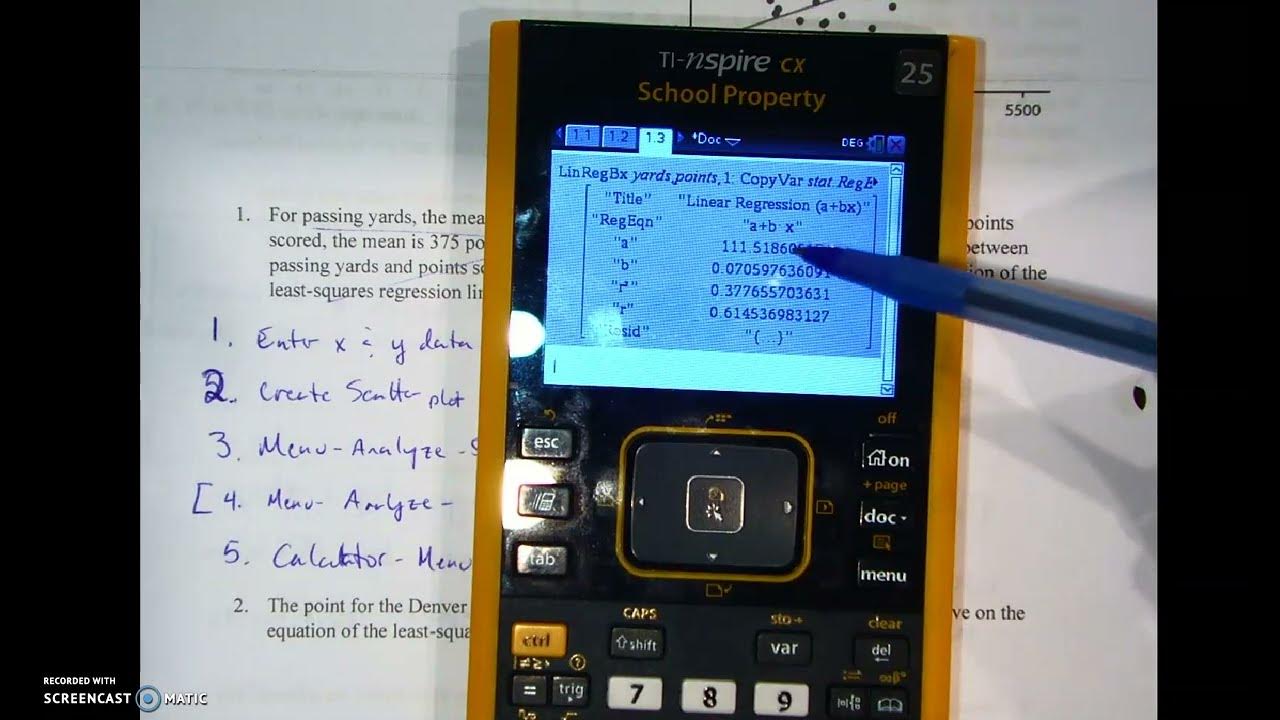 5500
TI-nspire CX
25
School Property
1.1 1.2 1.3 *Doc DEG
LinRegBx yards,points,1: CopyVar stat.RegE
"Title" "Linear Regression (a+bx)"
"RegEqn" "a+b·x"
"a" 111.5186
"b" 0.070597636091
"r²" 0.377655703631
"r" 0.614536983127
"{...}"
1. For passing yards, the mea
points
scored, the mean is 375 po
between
passing yards and points sc
ion of the
least-squares regression lin
1. Enter x & y data
2. Create Scatter plot
3. Menu - Analyze - S
[4. Menu - Analyze -
5. Calculator - Menu
2. The point for the Denver
ve on the
equation of the least-squa
off
esc
on
+ page
doc
tab
menu
CAPS
sto→
clear
ctrl
shift
var
del
=
trig
7
8
9
RECORDED WITH
SCREENCAST MATIC